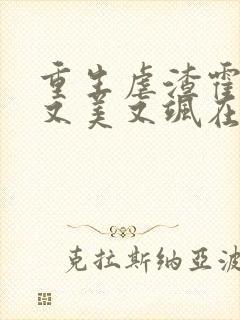 重生虐渣霍
又美又飒在
克拉斯纳亚波